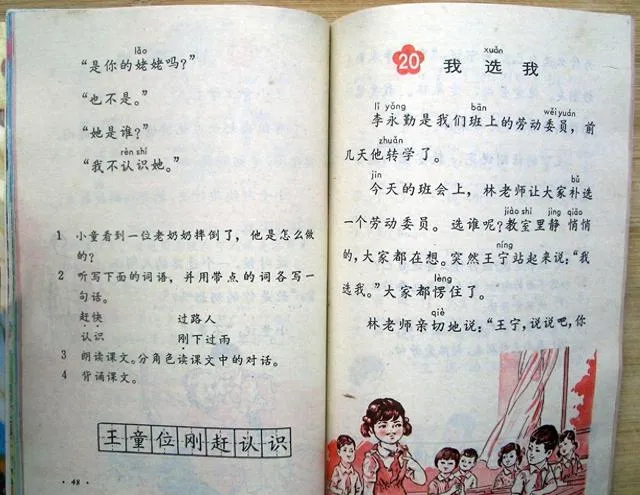 lǎo
“是你的姥姥吗?”
“也不是。”
“她是谁?”
rèn shi
“我不认识她。”
1 小童看到一位老奶奶摔倒了，他是怎么做
的?
2 听写下面的词语，并用带点的词各写一
句话。
赶快 过路人
认识 刚下过雨
3 朗读课文。分角色读课文中的对话。
4 背诵课文。
王童位刚赶认识
· 48 ·
xuǎn
20 我选我
lǐ yǒng bān wěi yuán
李永勤是我们班上的劳动委员，前
zhuǎn
几天他转学了。
jīn bǔ
今天的班会上，林老师让大家补选
jiào shì jìng qiāo
一个劳动委员。选谁呢?教室里静悄悄
níng
的，大家都在想。突然王宁站起来说：“我
lèng
选我。”大家都愣住了。
qiè
林老师亲切地说：“王宁，说说吧，你